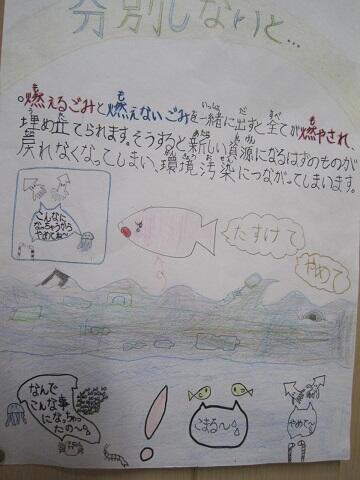 分別しないと…
。燃えるごみと燃えないごみを一緒に出すと全てが燃やされ、
埋め立てられます。そうすると新しい資源になるはずのものが
戻れなくなってしまい、環境汚染につながってしまいます。
こんなに
なっちゃうから
やめてね～
たすけて
やめて
なんで
こんな事
になっちゃっ
たの～
！
こまる～
やめて～